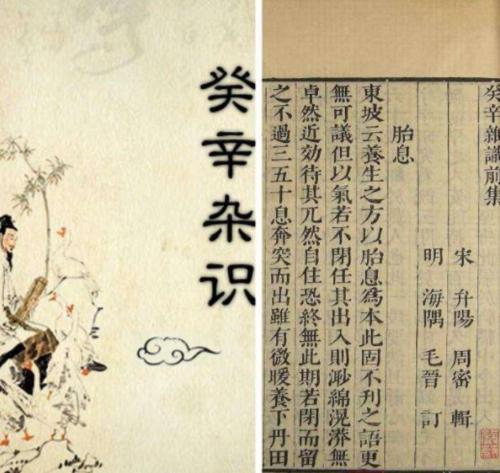 癸辛杂识
癸辛雜識前集
宋 弁陽 周密 輯
明 海隅 毛晉 訂
胎息
東坡云養生之方以胎息爲本此固不刋之語更
無可議但以氣若不閉任其出入則渺綿滉漭無
卓然近効待其兀然自住恐終無此期若閉而留
之不過三五十息奔突而出雖有微暖養下丹田